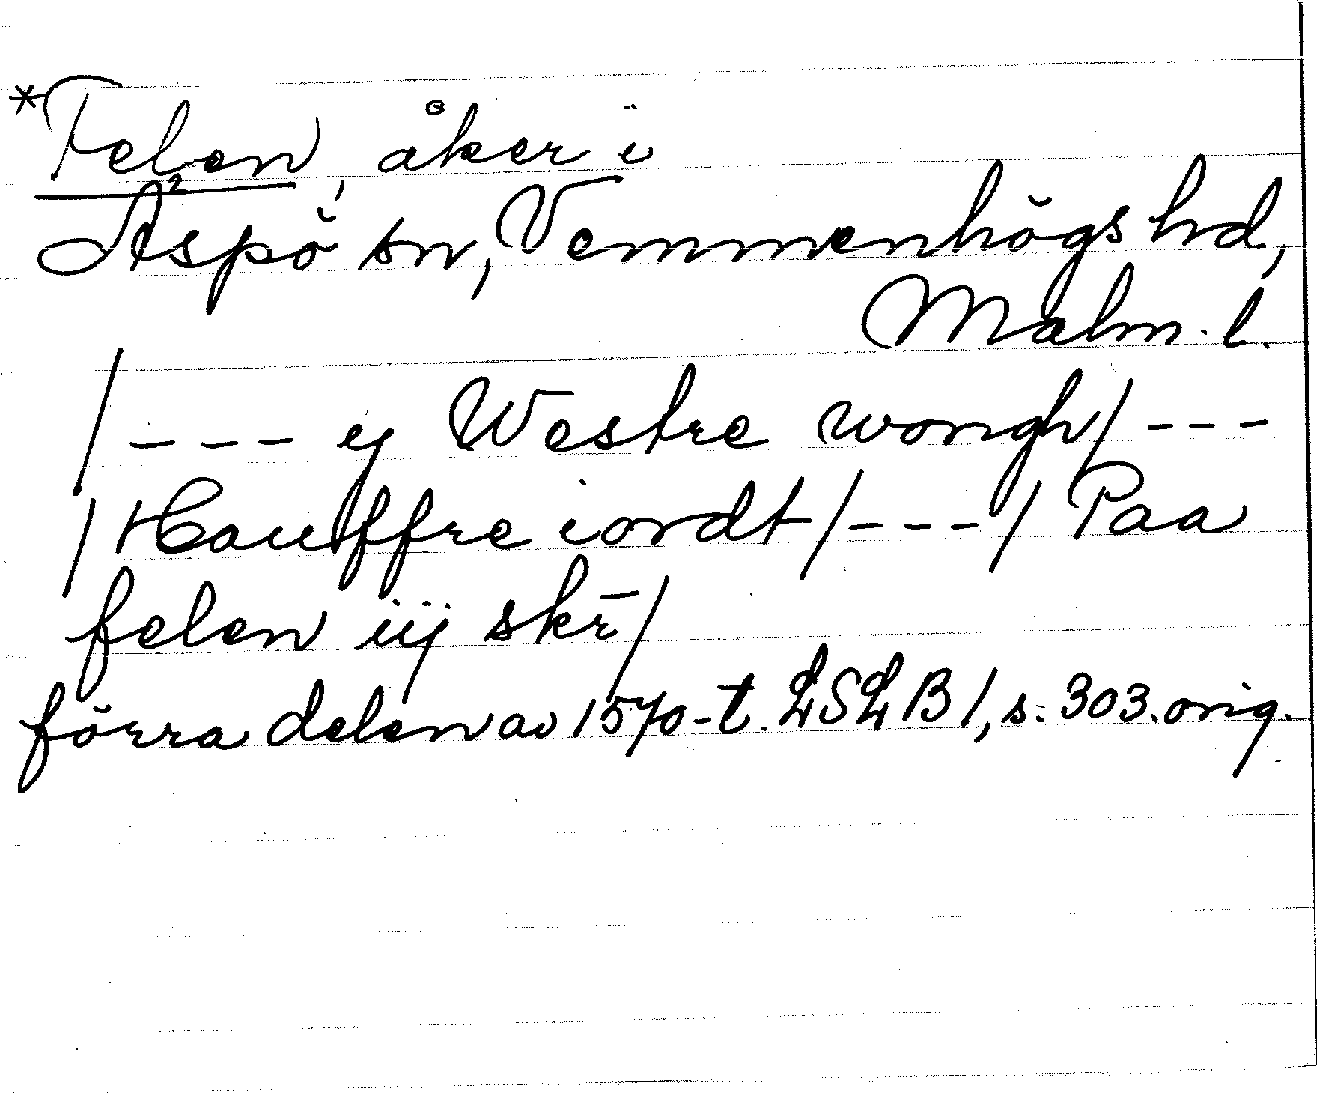 *Felen, åker i
Äspö sn, Vemmenhögs hd,
Malm. l.
/--- ij Westre wongh/---
/Hauffre iordt/---/Paa
felen iij skr̄/
förra delen av 1570-t. LSLB1, s. 303. orig.